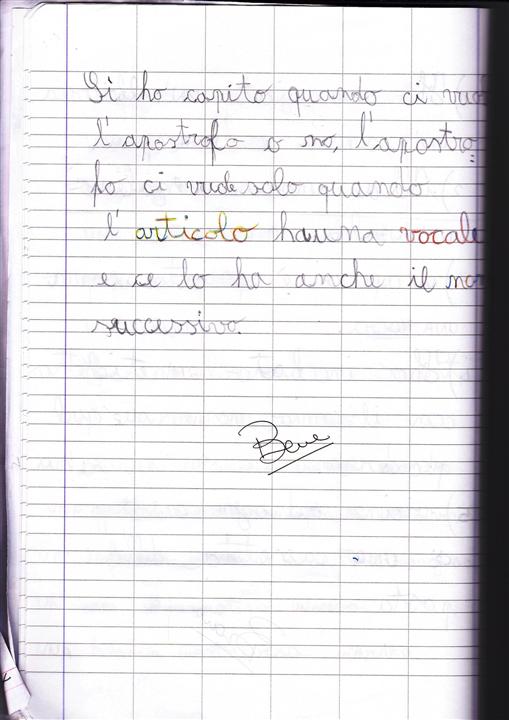 Si ho capito quando ci vuo
l'apostrofo o no, l'apostro=
fo ci vude solo quando
l'articolo ha una vocale
e ce lo ha anche il no
successivo.
Bene